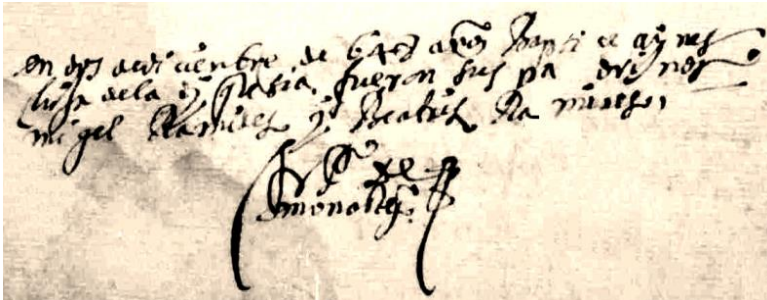 en dos de diciembre de 648 años Bapticé a ynes
hija de la yglesia fueron sus padrinos
migel Ramires y Beatris Ramires